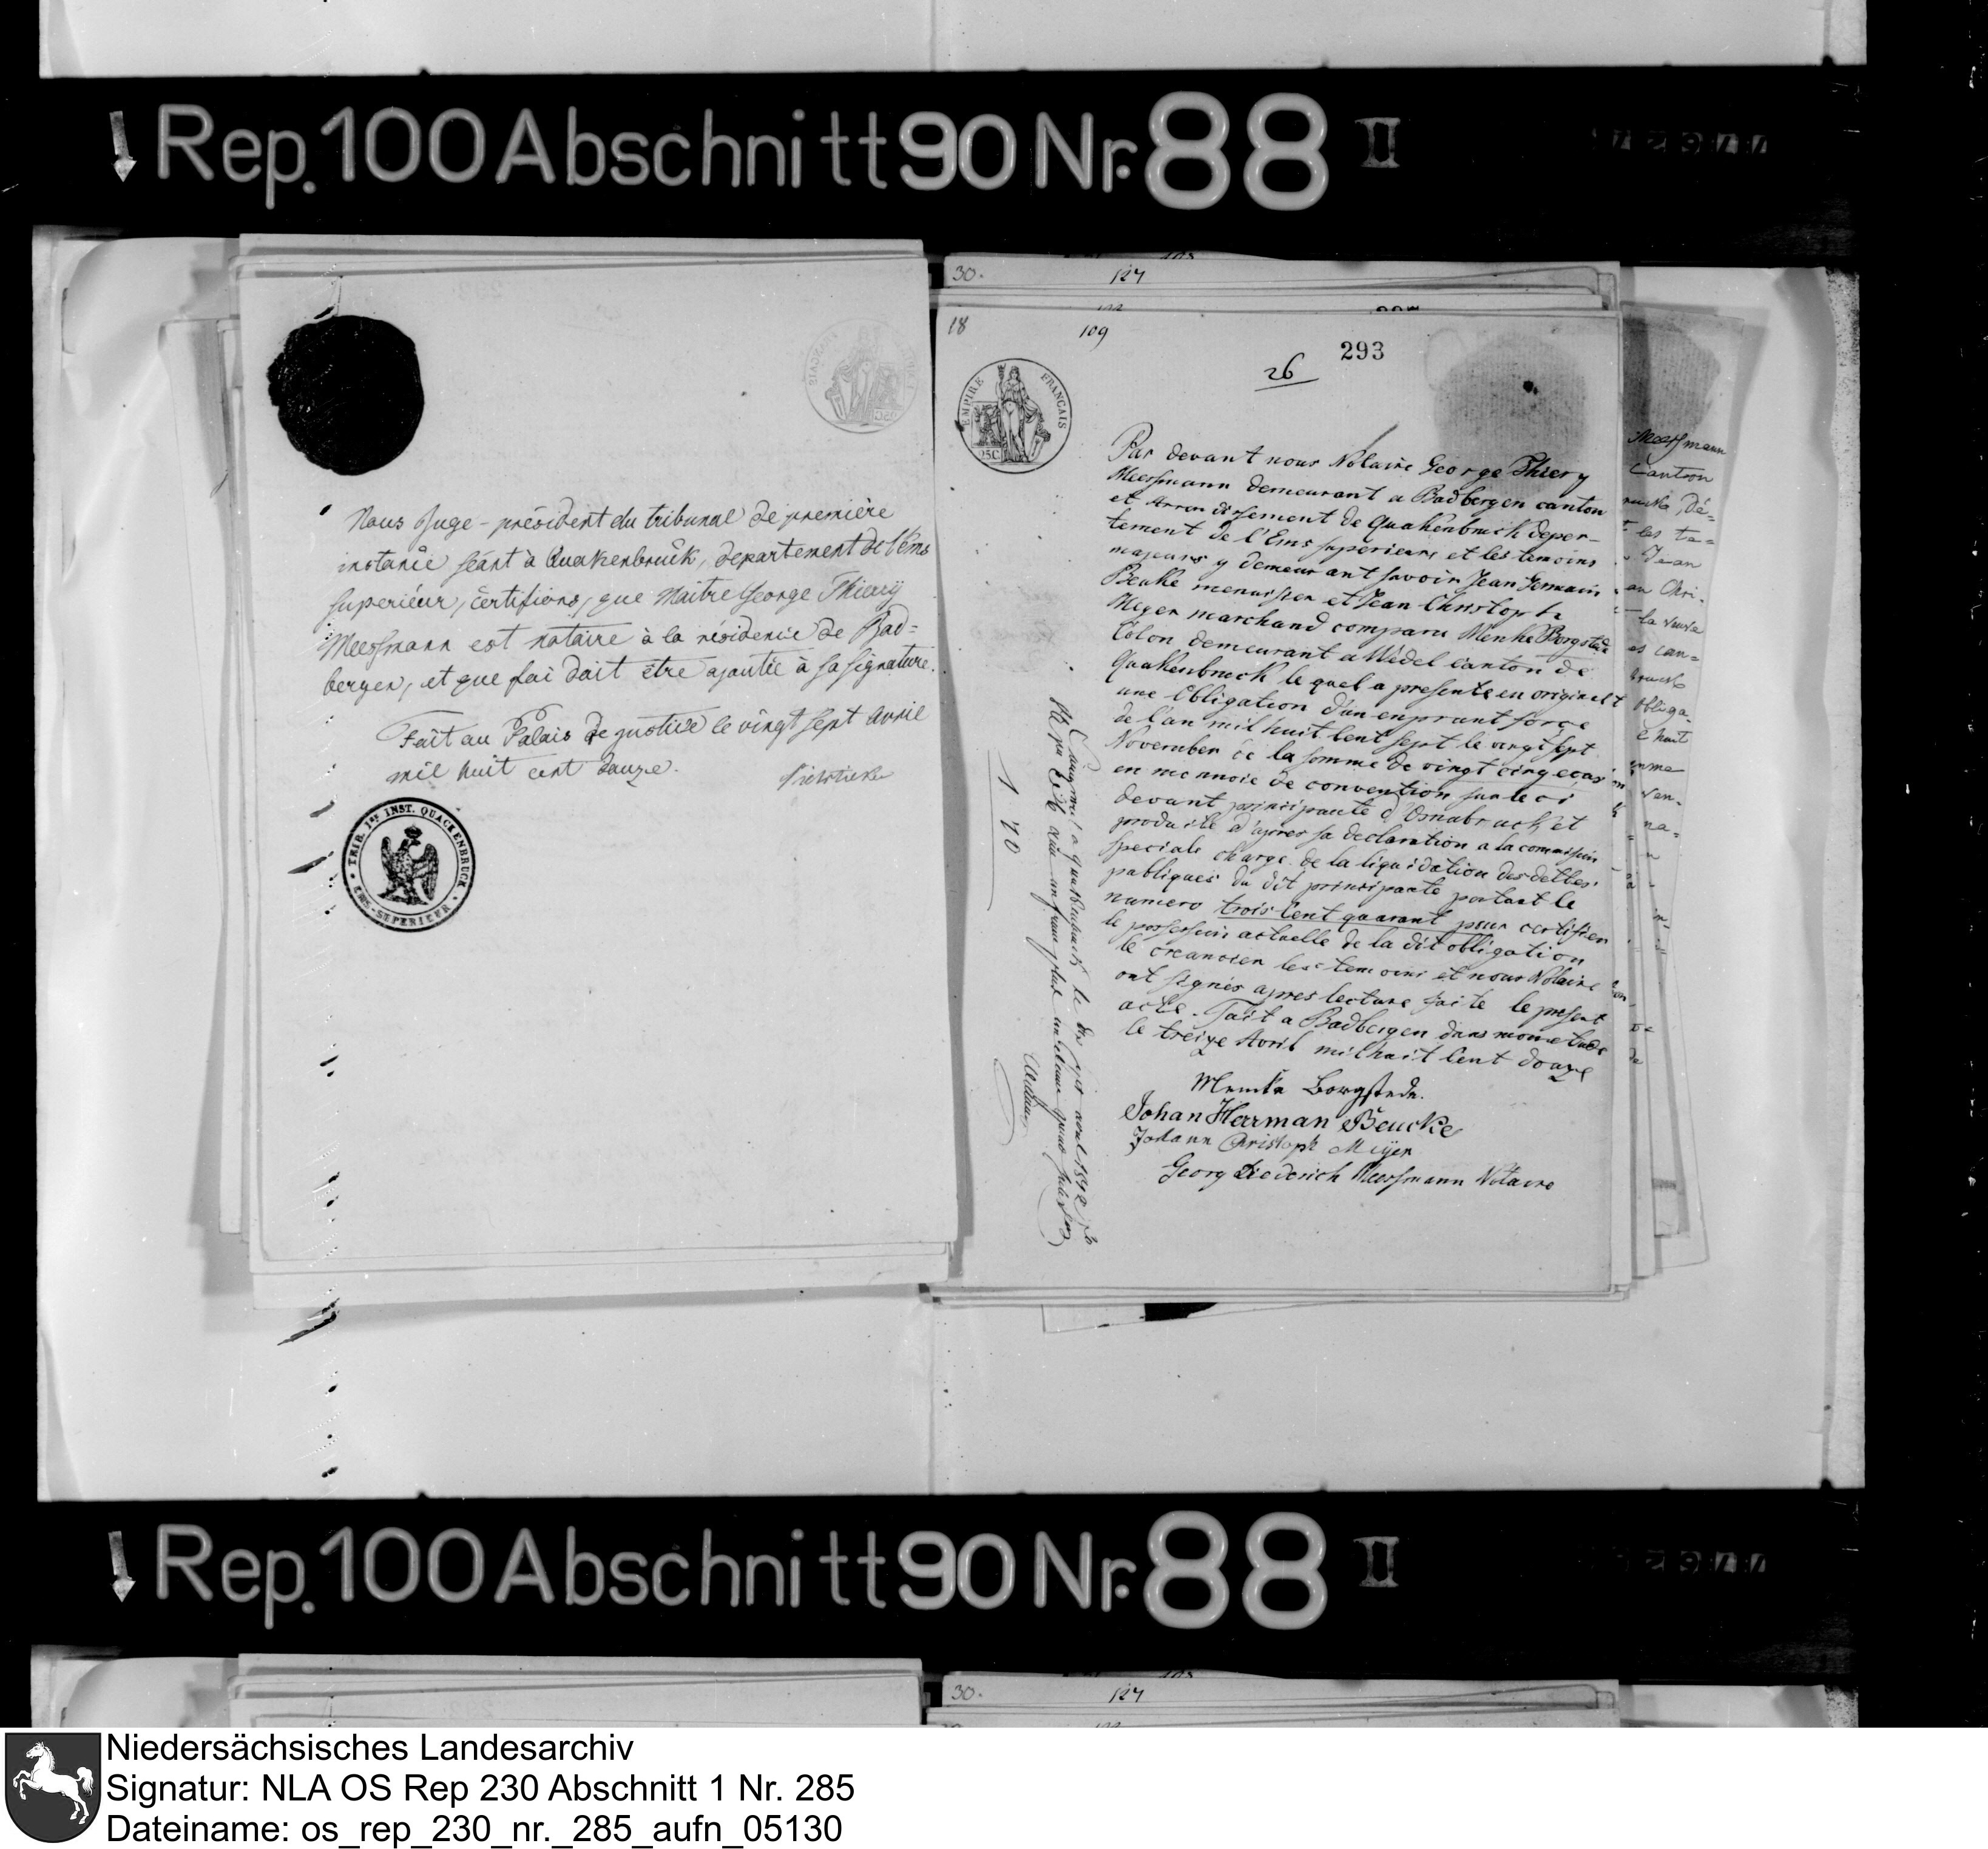 Rep. 100 Abschnitt 90 Nr. 88 II
Nous Juge-président du tribunal de première
instance séant à Quakenbrück, departement de l'Ems
superieur, certifions, que Maitre George Thiery
Meessmann est notaire à la residence de Bad=
bergen, et que foi doit être ajoutée à sa signature.
Fait au Palais de justice le vingt sept Avril
mil huit cent douze.
TRIB. 1er INST. QUACKENBRUCK
EMS-SUPERIEUR
30. 127
18 109
293
26
EMPIRE FRANÇAIS
25C.
Par devant nous Notaire George Thiery
Meessmann demeurant a Badbergen canton
et Arrondissement de Quakenbruck depar-
tement de l'Ems superieure et les temoins
majeurs y demeurant savoir Jean Hermann
Beuke menuisier et Jean Christoph
Meyer marchand comparu Menke Borgstede
Colon demeurant a Wedel canton de
Quakenbruck le quel a presente en originelt
une Obligation d'un enprunt force
de l'an mil huit Cent sept le vingt sept
November de la somme de vingt cinq ecus
en monnoie de convention sur le ci
devant principaute d'Osnabruck, et
produite d'apres sa declaration a la commission
speciale charge de la liquidation des dettes
publiques du dit principaute portant le
numero trois Cent quarant pour certifier
le possession actuelle de la dit obligation
le creancier les temoins et nous Notaire
ont signés apres lecture faite le present
acte. Fait a Badbergen dans mon etude
le treize Avril mil huit Cent douze
Menke Borgstede.
Johan Herman Beucke
Johann Christoph Meijer
Georg Diederich Meessmann Notaire
1 70
Meessmann
Canton
Dé=
les te=
Jean
an Chri-
la veuve
es can=
bruck
Obliga-
huit
Rep. 100 Abschnitt 90 Nr. 88 II
30. 127
Niedersächsisches Landesarchiv
Signatur: NLA OS Rep 230 Abschnitt 1 Nr. 285
Dateiname: os_rep_230_nr._285_aufn_05130